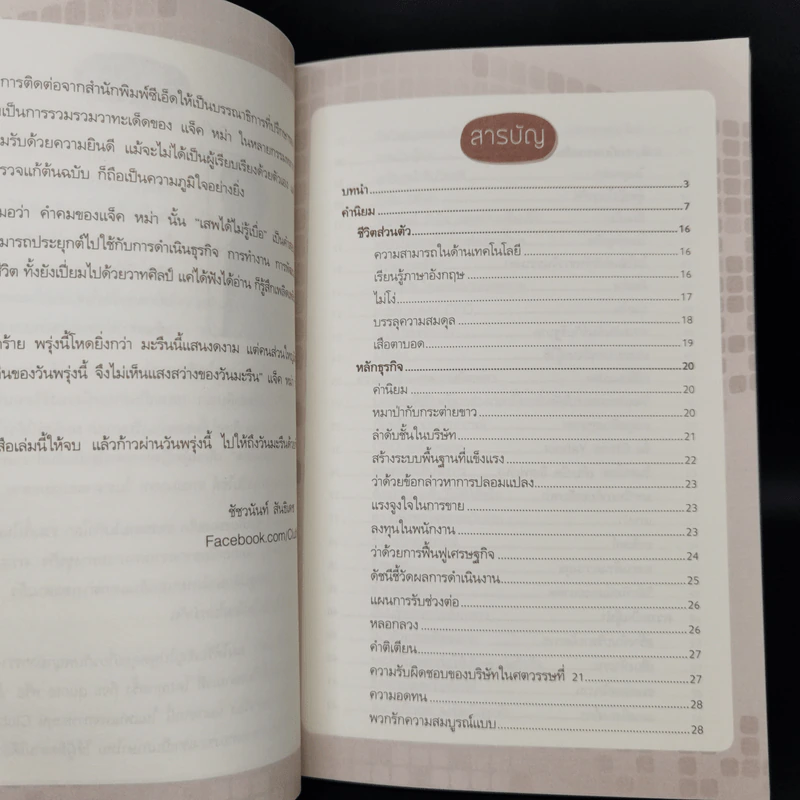 การติดต่อจากสำนักพิมพ์ซีเอ็ดให้เป็นบรรณาธิการที่ปรึกษา
เป็นการรวมรวมวาทะเด็ดของ แจ็ค หม่า ในหลายการ
มรับด้วยความยินดี แม้จะไม่ได้เป็นผู้เรียบเรียงด้วยตัวเอง
รวจแก้ต้นฉบับ ก็ถือเป็นความภูมิใจอย่างยิ่ง
มอว่า คำคมของแจ็ค หม่า นั้น "เสพได้ไม่รู้เบื่อ" เป็น
มารถประยุกต์ไปใช้กับการดำเนินธุรกิจ การทำงาน การ
ชีวิต ทั้งยังเปี่ยมไปด้วยวาทศิลป์ แค่ได้ฟังได้อ่าน ก็รู้สึก
ร้าย พรุ่งนี้โหดยิ่งกว่า มะรืนนี้แสนงดงาม แต่คนส่วนใหญ่
ของวันพรุ่งนี้ จึงไม่เห็นแสงสว่างของวันมะรืน" แจ็ค หม่า
สือเล่มนี้ให้จบ แล้วก้าวผ่านวันพรุ่งนี้ ไปให้ถึงวันมะรืน
ชัชวนันท์ สันธิเดช
Facebook.com/Clu
สารบัญ
บทนำ 3
คำนิยม 7
ชีวิตส่วนตัว 16
ความสามารถในด้านเทคโนโลยี 16
เรียนรู้ภาษาอังกฤษ 16
ไม่โง่ 17
บรรลุความสมดุล 18
เสือตาบอด 19
หลักธุรกิจ 20
ค่านิยม 20
หมาป่ากับกระต่ายขาว 20
ลำดับชั้นในบริษัท 21
สร้างระบบพื้นฐานที่แข็งแรง 22
ว่าด้วยข้อกล่าวหาการปลอมแปลง 23
แรงจูงใจในการขาย 23
ลงทุนในพนักงาน 23
ว่าด้วยการฟื้นฟูเศรษฐกิจ 24
ดัชนีชี้วัดผลการดำเนินงาน 25
แผนการรับช่วงต่อ 26
หลอกลวง 26
คำติเตียน 27
ความรับผิดชอบของบริษัทในศตวรรษที่ 21 27
ความอดทน 28
พวกรักความสมบูรณ์แบบ 28